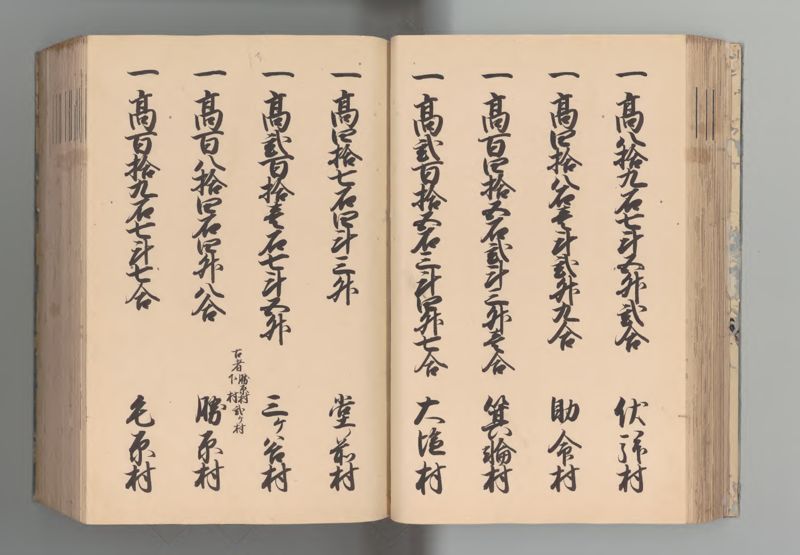 一 高八拾九石七斗五升弐合 伏拝村
一 高四拾八石壱斗弐升九合 助命村
一 高百四拾五石弐斗三升壱合 箕輪村
一 高弐百拾五石三斗四升七合 大塩村
一 高四拾七石四斗三升 堂ノ前村
一 高弐百拾壱石七斗五升 三ケ谷村
古者 勝原村 下村 弐ケ村
一 高百八拾四石四升八合 勝原村
一 高百拾九石七斗七合 毛原村